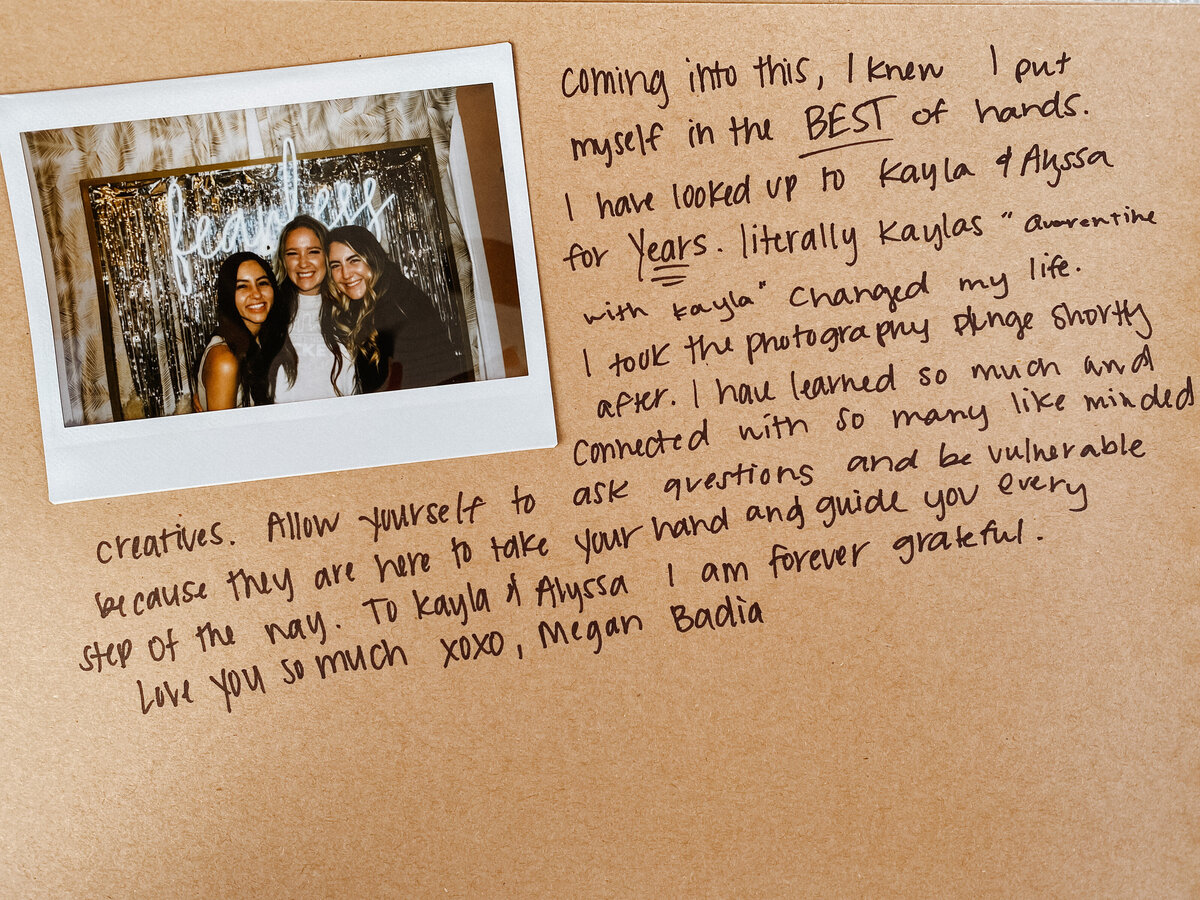 fearless
coming into this, I knew I put
myself in the BEST of hands.
I have looked up to Kayla & Alyssa
for Years. literally Kaylas "Quarentine
with Kayla" Changed my life.
I took the photography plunge shortly
after. I have learned so much and
connected with so many like minded
creatives. Allow yourself to ask questions and be vulnerable
because they are here to take your hand and guide you every
step of the way. To Kayla & Alyssa I am forever grateful.
Love you so much xoxo, Megan Badia